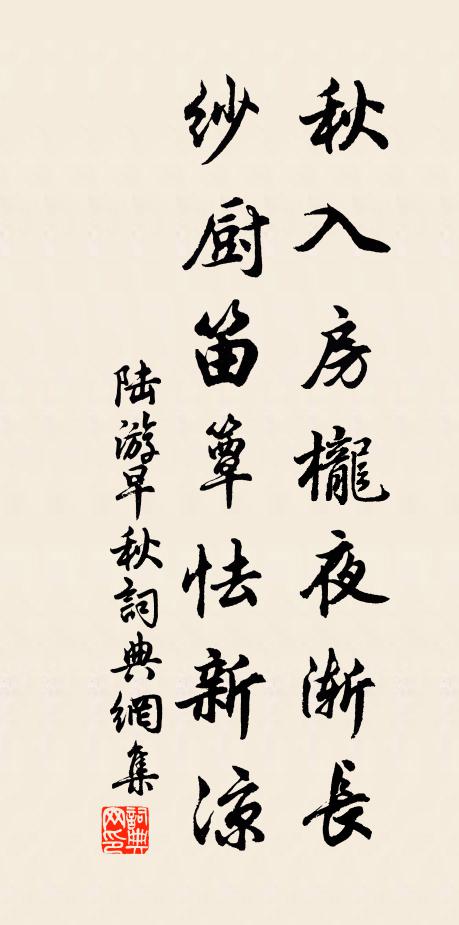 秋入房櫳夜漸長
紗厨笛簟怯新涼
陆游早秋詞典網集
詞典
网印